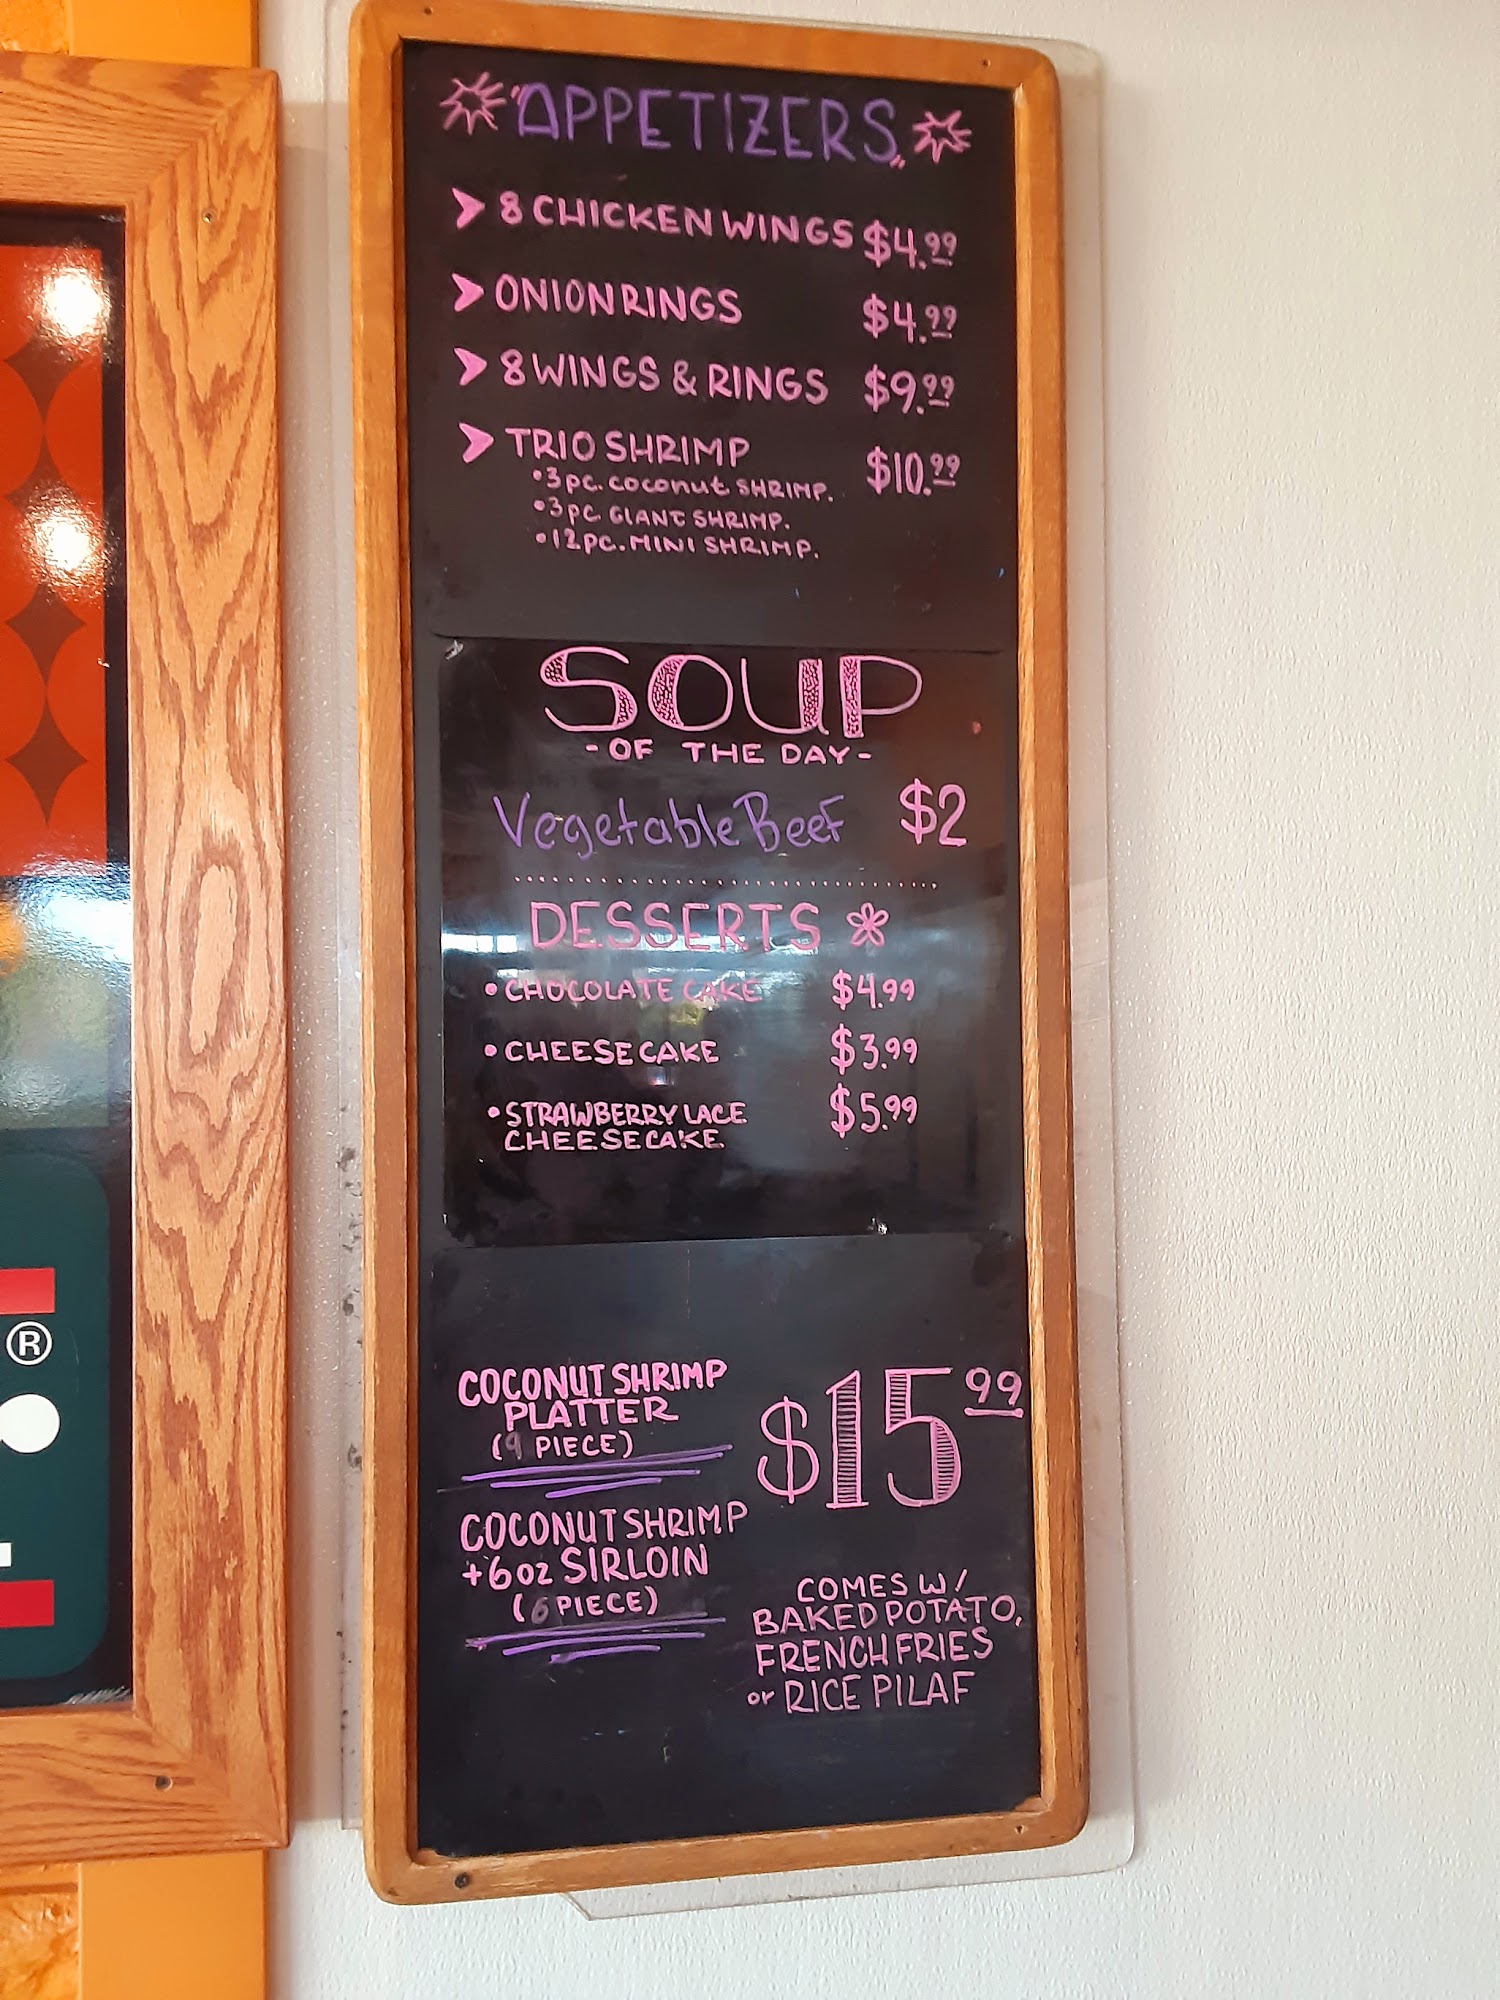 APPETIZERS
➤ 8 CHICKEN WINGS $4.99
➤ ONION RINGS $4.99
➤ 8 WINGS & RINGS $9.99
➤ TRIO SHRIMP $10.99
• 3 pc. coconut SHRIMP.
• 3 pc GIANT SHRIMP.
• 12 pc. MINI SHRIMP.
SOUP
- OF THE DAY -
Vegetable Beef $2
DESSERTS
• CHOCOLATE CAKE $4.99
• CHEESECAKE $3.99
• STRAWBERRY LACE $5.99
CHEESECAKE
COCONUT SHRIMP
PLATTER
(9 PIECE)
$15.99
COCONUT SHRIMP
+ 6 oz SIRLOIN
(6 PIECE)
COMES W/
BAKED POTATO,
FRENCH FRIES
or RICE PILAF
®